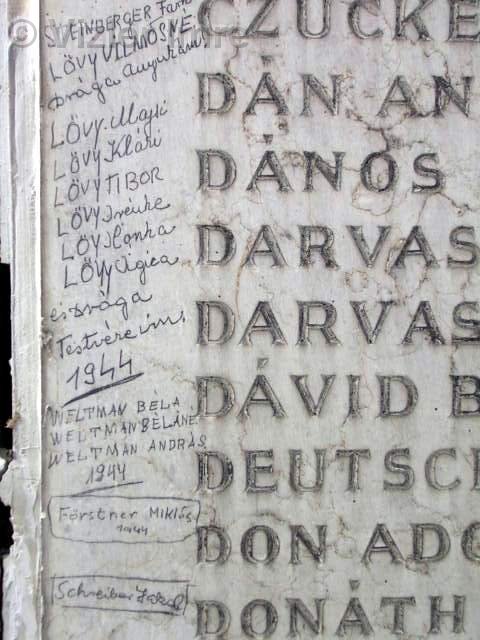 STEINBERGER
LÖVY VILMOSNÉ
Drága
LÖVY Majsi
LÖVY Klári
LÖVY TIBOR
LÖVY Irénke
LÖVY Ilonka
LÖVY Ágica
és Drága
Testvéreim,
1944
WELTMAN BÉLA
WELTMAN BÉLÁNÉ
WELTMAN ANDRÁS
1944
Förstner MIKLÓS
1944
Schreiber
CZUCKE
DÁN AN
DÁNOS
DARVAS
DARVAS
DÁVID B
DEUTSC
DON ADO
DONÁTH